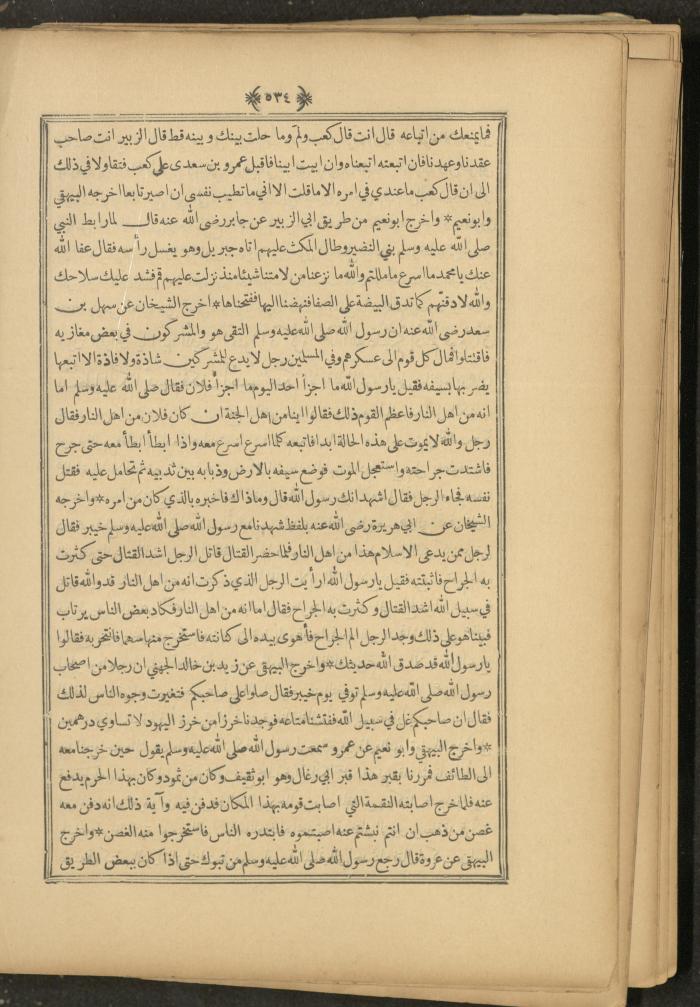 ٥٣٤
فما يمنعك من اتباعه قال انت قال كعب ولم وما حلت بينك وبينه قط قال الزبير انت صاحب
عقدنا وعهدنا فان اتبعته اتبعناه وان ابيت ابينا فاقبل عمرو بن سعدى على كعب فتقاولا في ذلك
الى ان قال كعب ما عندي في امره الا ما قلت الا اني ما تطيب نفسي ان اصير تابعا اخرجه البيهقي
وابونعيم * واخرج ابونعيم من طريق ابي الزبير عن جابر رضى الله عنه قال لما رابط النبي
صلى الله عليه وسلم بني النضير وطال المكث عليهم اتاه جبريل وهو يغسل رأسه فقال عفا الله
عنك يا محمد ما اسرع ما مللتم والله ما نزعنا من لامتنا شيئا منذ نزلت عليهم قم فشد عليك سلاحك
والله لادقنهم كما تدق البيضة على الصفا فنهضنا اليها ففتحناها * اخرج الشيخان عن سهل بن
سعد رضى الله عنه ان رسول الله صلى الله عليه وسلم التقى هو والمشركون في بعض مغازيه
فاقتتلوا فمال كل قوم الى عسكرهم وفي المسلمين رجل لا يدع للمشركين شاذة ولا فاذة الا اتبعها
يضربها بسيفه فقيل يا رسول الله ما اجزأ احد اليوم ما اجزأ فلان فقال صلى الله عليه وسلم اما
انه من اهل النار فاعظم القوم ذلك فقالوا اينا من اهل الجنة ان كان فلان من اهل النار فقال
رجل والله لا يموت على هذه الحالة ابدا فاتبعه كلما اسرع اسرع معه واذا ابطأ ابطأ معه حتى جرح
فاشتدت جراحته واستعجل الموت فوضع سيفه بالارض وذبابه بين ثدييه ثم تحامل عليه فقتل
نفسه فجاء الرجل فقال اشهد انك رسول الله قال وما ذاك فاخبره بالذي كان من امره * واخرجه
الشيخان عن ابي هريرة رضى الله عنه بلفظ شهدنا مع رسول الله صلى الله عليه وسلم خيبر فقال
لرجل ممن يدعى الاسلام هذا من اهل النار فلما حضر القتال قاتل الرجل اشد القتال حتى كثرت
به الجراح فاثبتته فقيل يا رسول الله ارأيت الرجل الذي ذكرت انه من اهل النار قد والله قاتل
في سبيل الله اشد القتال وكثرت به الجراح فقال اما انه من اهل النار فكاد بعض الناس يرتاب
فبينما هو على ذلك وجد الرجل الم الجراح فأهوى بيده الى كنانته فاستخرج منها سهما فانتحر به فقالوا
يا رسول الله قد صدق الله حديثك * واخرج البيهقي عن زيد بن خالد الجهني ان رجلا من اصحاب
رسول الله صلى الله عليه وسلم توفي يوم خيبر فقال صلوا على صاحبكم فتغيرت وجوه الناس لذلك
فقال ان صاحبكم غل في سبيل الله ففتشنا متاعه فوجدنا خرزا من خرز اليهود لا تساوي درهمين
* واخرج البيهقي وابو نعيم عن عمرو سمعت رسول الله صلى الله عليه وسلم يقول حين خرجنا معه
الى الطائف فمررنا بقبر هذا قبر ابي رغال وهو ابو ثقيف وكان من ثمود وكان بهذا الحرم يدفع
عنه فلما خرج اصابته النقمة التي اصابت قومه بهذا المكان فدفن فيه وآية ذلك انه دفن معه
غصن من ذهب ان انتم نبشتم عنه اصبتموه فابتدره الناس فاستخرجوا منه الغصن * واخرج
البيهقي عن عروة قال رجع رسول الله صلى الله عليه وسلم من تبوك حتى اذا كان ببعض الطريق